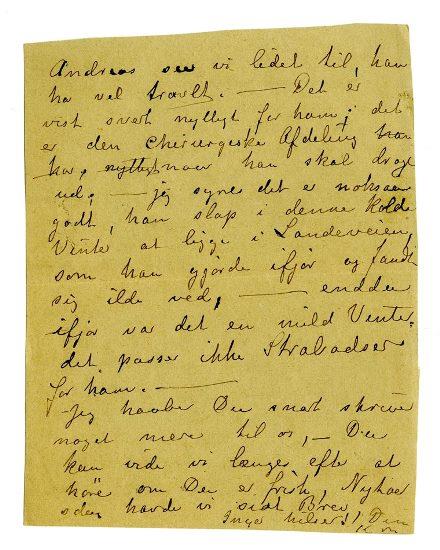 Andreas see vi lidet til, han
ha vel travlt. — Det er
vist svert nyttigt for ham; det
er den Cherurgeske Afdeling han
har, nyttigt naar han skal drage
ud; — jeg synes det er noksaa
godt, han slap i denne kolde
Vinter at ligge i Landeveien,
som han gjorde ifjor og fandt
sig ilde ved, — endda
ifjor var det en mild Venter.
det passer ikke Strabadser
for ham. —
Jeg haaber Du snart skriver
noget mere til os, — Du
kan vide vi længes efte at
höre om Du er frisk, Nyhaar
sden havde vi sidst Brev
Inga hilser! Din